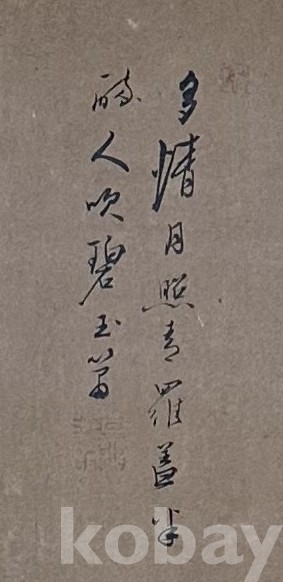 多情月照青羅蓋半
醉人吹碧玉簫
kobay